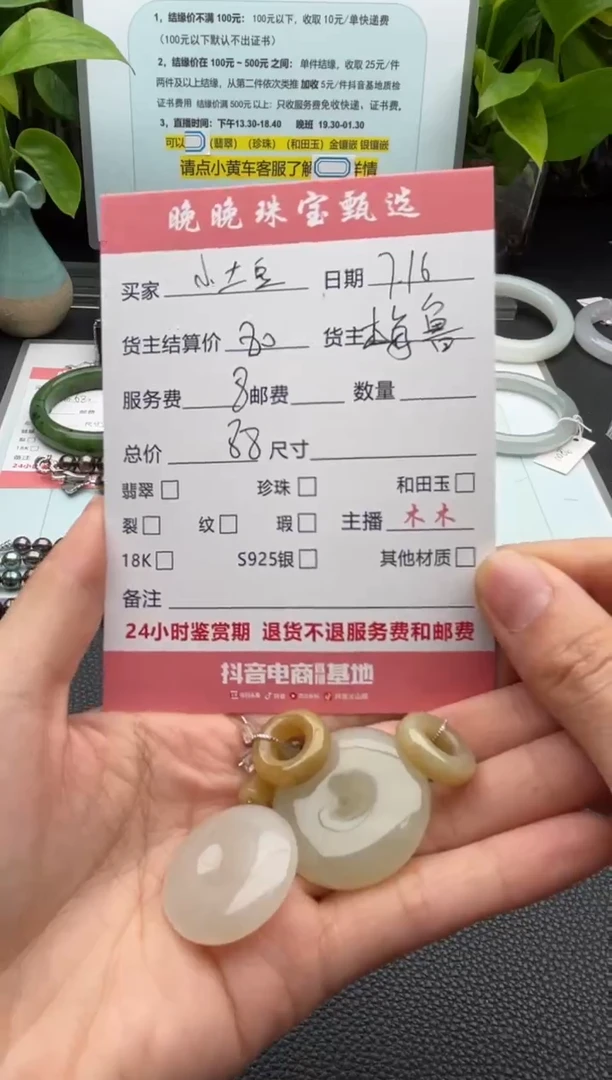 1、结缘价不满 100元: 100元以下，收取 10元/单快递费
（100元以下默认不出证书）
2、结缘价在 100元～500元 之间: 单件结缘，收取 25元/件
两件及以上结缘，从第二件依次类推 加收 5元/件抖音基地质检
证书费用 结缘价满 500元以上: 只收服务费免收快递、证书费。
3、直播时间: 下午13.30-18.40 晚班 19.30-01.30
可以（翡翠）（珍珠）（和田玉）金镶嵌 银镶嵌
请点小黄车客服了解详情
晚晚珠宝甄选
买家 小土豆 日期 7.16
货主结算价 80 货主
服务费 8 邮费 数量
总价 88 尺寸
翡翠 珍珠 和田玉
裂 纹 瑕 主播 木木
18K S925银 其他材质
备注
24小时鉴赏期 退货不退服务费和邮费
抖音电商直播基地